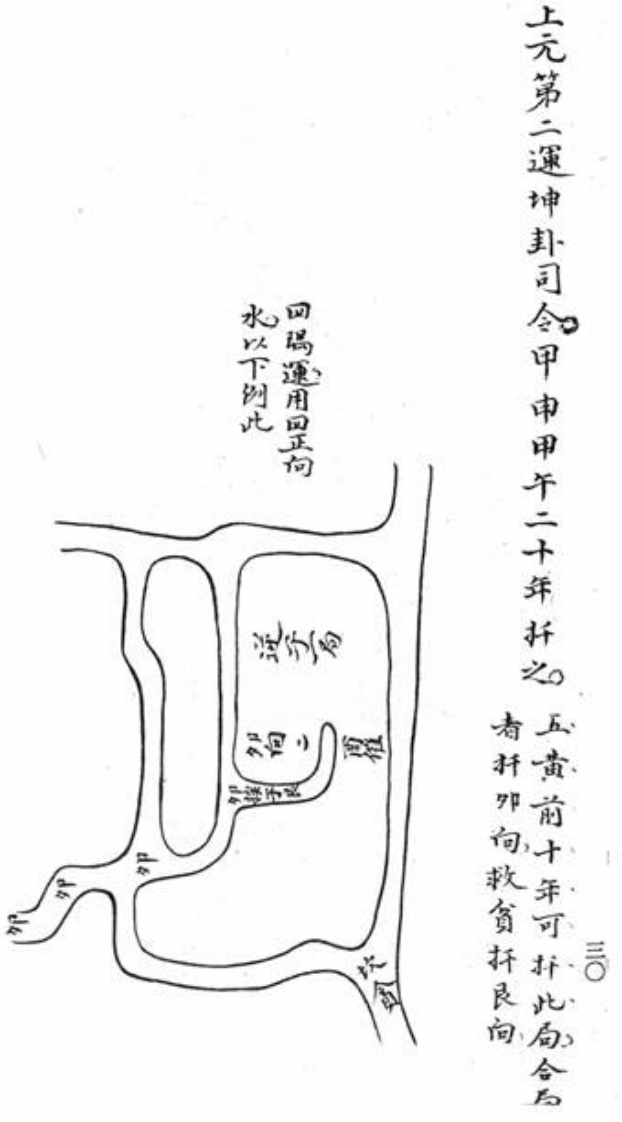 上元第二運坤卦司令。甲申甲午二十年扦之。
五黄前十年可扦此局、合局
者扦卯向、救貧扦艮向、
三〇
四隅運、用四正向
水、以下例此
逆子局
卯向
酉
卯
艮
卯
卯
卯